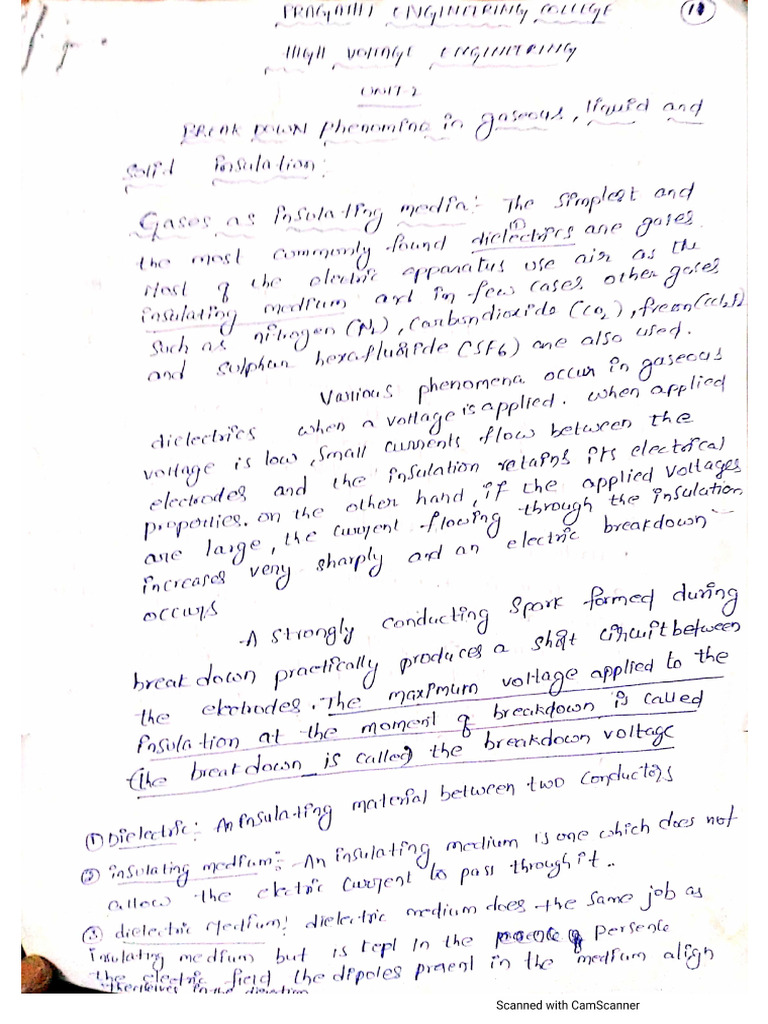 PRAGATHI ENGINEERING COLLEGE
HIGH VOLTAGE ENGINEERING
UNIT-2
BREAK DOWN Phenomina in gaseous, liquid and
solid insulation:
Gases as insulating media:- The simplest and
the most commonly found dielectrics (1) are gases.
Most of the electric apparatus use air as the
insulating medium and in few cases other gases
such as nitrogen (N2), Carbondioxide (CO2), freon
and sulphur hexafluride (SF6) are also used.
Various phenomena occur in gaseous
dielectrics when a voltage is applied. when applied
voltage is low, small currents flow between the
electrodes and the insulation retains its electrical
properties. on the other hand, if the applied voltages
are large, the current flowing through the insulation
increases very sharply and an electric breakdown
occurs
A strongly conducting spark formed during
breakdown practically produces a short circuit between
the electrodes. The maximum voltage applied to the
insulation at the moment of breakdown is called
(the breakdown is called) the breakdown voltage
① Dielectric: An insulating material between two conductors
② insulating medium:- An insulating medium is one which does not
allow the electric current to pass through it..
③ dielectric Medium: dielectric medium does the same job as
insulating medium but is kept in the persence
the electric field the dipoles present in the medium align
themselves in the direction
Scanned with CamScanner